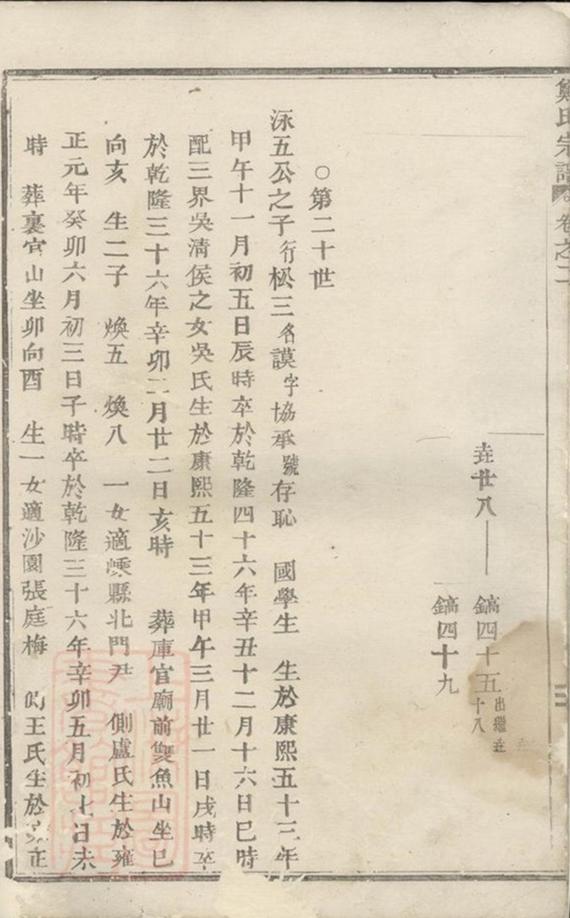 鄭氏宗譜 卷之二
垚廿八 鎬四十五 出繼垚十八
鎬四十九
○第二十世
泳五公之子行松三名謨字協承號存恥 國學生 生於康熙五十三年
甲午十一月初五日辰時卒於乾隆四十六年辛丑十二月十六日巳時
配三界吳清侯之女吳氏生於康熙五十三年甲午三月廿一日戌時卒
於乾隆三十六年辛卯二月廿二日亥時 葬庫官廟前雙魚山坐巳
向亥 生二子 煥五 煥八 一女適嵊縣北門尹 側盧氏生於雍
正元年癸卯六月初三日子時卒於乾隆三十六年辛卯五月初七日未
時 葬裏官山坐卯向酉 生一女適沙園張庭梅 王氏生於雍正